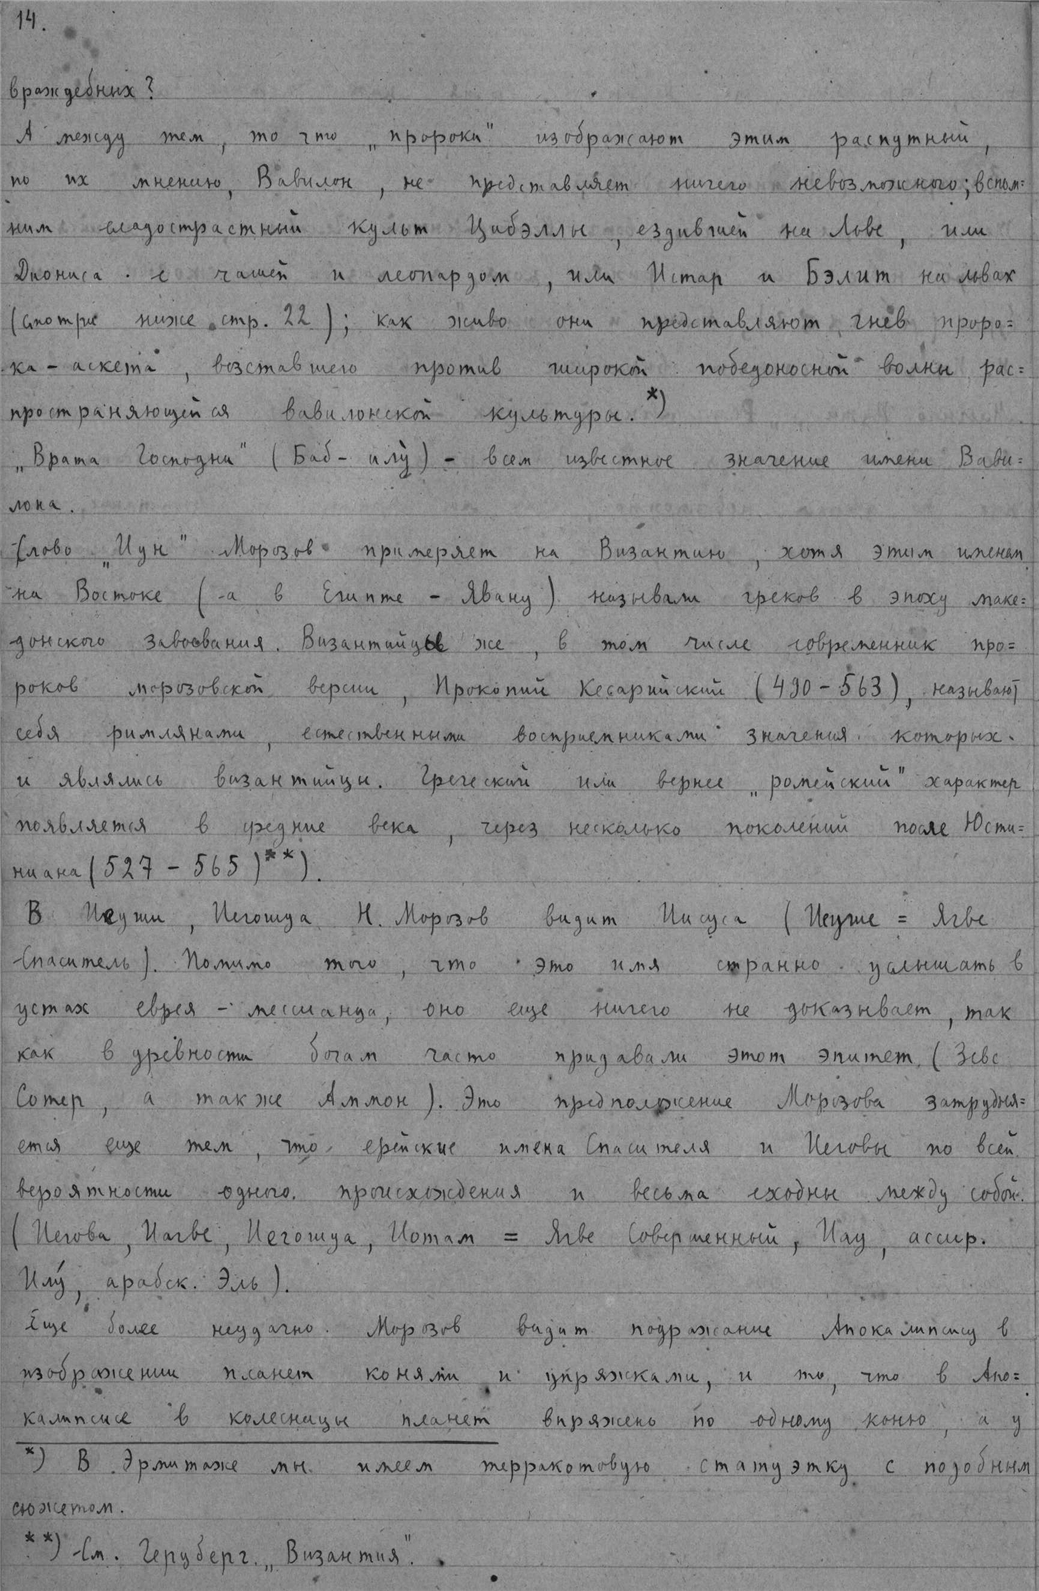 14.
враждебных?
А между тем, то что „пророки" изображают этим распутный,
по их мнению, Вавилон, не представляет ничего невозможного; вспом=
ним сладострастный культ Цибэллы, ездившей на Льве, или
Диониса с чашей и леопардом, или Истар и Бэлит на львах
(смотри ниже стр. 22); как живо они представляют гнев проро=
ка-аскета, возставшего против широкой победоносной волны рас=
пространяющейся вавилонской культуры.*)
„Врата Господни" (Баб-илу̀) - всем известное значение имени Вави=
лона.
Слово „Иун" Морозов примеряет на Византию, хотя этим именем
на Востоке (а в Египте - Явану) называли греков в эпоху маке=
донского завоевания. Византийцы же, в том числе современник про=
роков морозовской версии, Прокопий Кесарийский (490-563), называют
себя римлянами, естественными восприемниками значения которых
и являлись византийцы. Греческий или вернее „ромейский" характер
появляется в средние века, через несколько поколений после Юсти=
ниана (527-565)**).
В Иеуши, Иегошуа Н. Морозов видит Иисуса (Иеуше = Ягве
Спаситель). Помимо того, что это имя странно услышать в
устах еврея - мессианца, оно еще ничего не доказывает, так
как в древности богам часто придавали этот эпитет (Зевс
Сотер, а также Аммон). Это предположение Морозова затрудня=
ется еще тем, что ерейские имена Спасителя и Иеговы по всей
вероятности одного происхождения и весьма сходны между собой.
(Иегова, Иагве, Иегошуа, Иотам = Ягве Совершенный, Иау, ассир.
Илу́, арабск. Эль).
Еще более неудачно Морозов видит подражание Апокалипсису в
изображении планет конями и упряжками, и то, что в Апо=
калипсисе в колесницы планет впряжень по одному коню, а у
*) В Эрмитаже мы имеем терракотовую статуэтку с подобным
сюжетом.
**) См. Герцберг. „Византия".